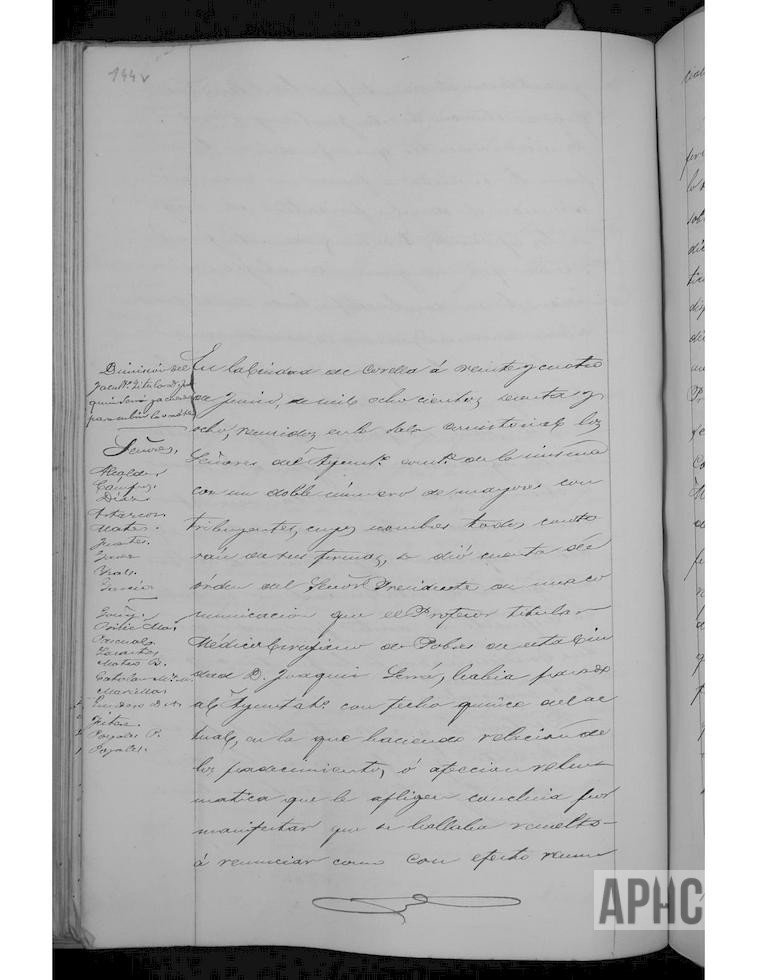 144v
Dimisión del
facult.º titular D.
para cubrir la vacte
Señores.
Alcalde
Campos.
Díaz
Mateo.
Yustes.
Sanz
Vial.
García
Goñi.
Pascual
Mateo B.
Catalan
Escudero
Poyales P.
Poyales.
En la Ciudad de Corella á veinte y cuatro
de Junio, de mil ocho cientos sesenta y
ocho, reunidos en la Sala consistorial los
Señores del Ayunt.º const.l de la misma
con un doble número de mayores con
tribuyentes, cuyos nombres todos consta
rán de sus firmas, se dió cuenta de
órden del Señor Presidente de una co
municacion que el Profesor titular
Médico Cirujano de Pobres de esta Ciu
dad D. Joaquin Serrá, habia pasado
al Ayuntat.º con fecha quince del ac
tual, en la que haciendo relacion de
los padecimientos, ó afeccion rehu
matica que le afligen concluia por
manifestar que se hallaba resuelto
á renunciar como con efecto renun
APHC